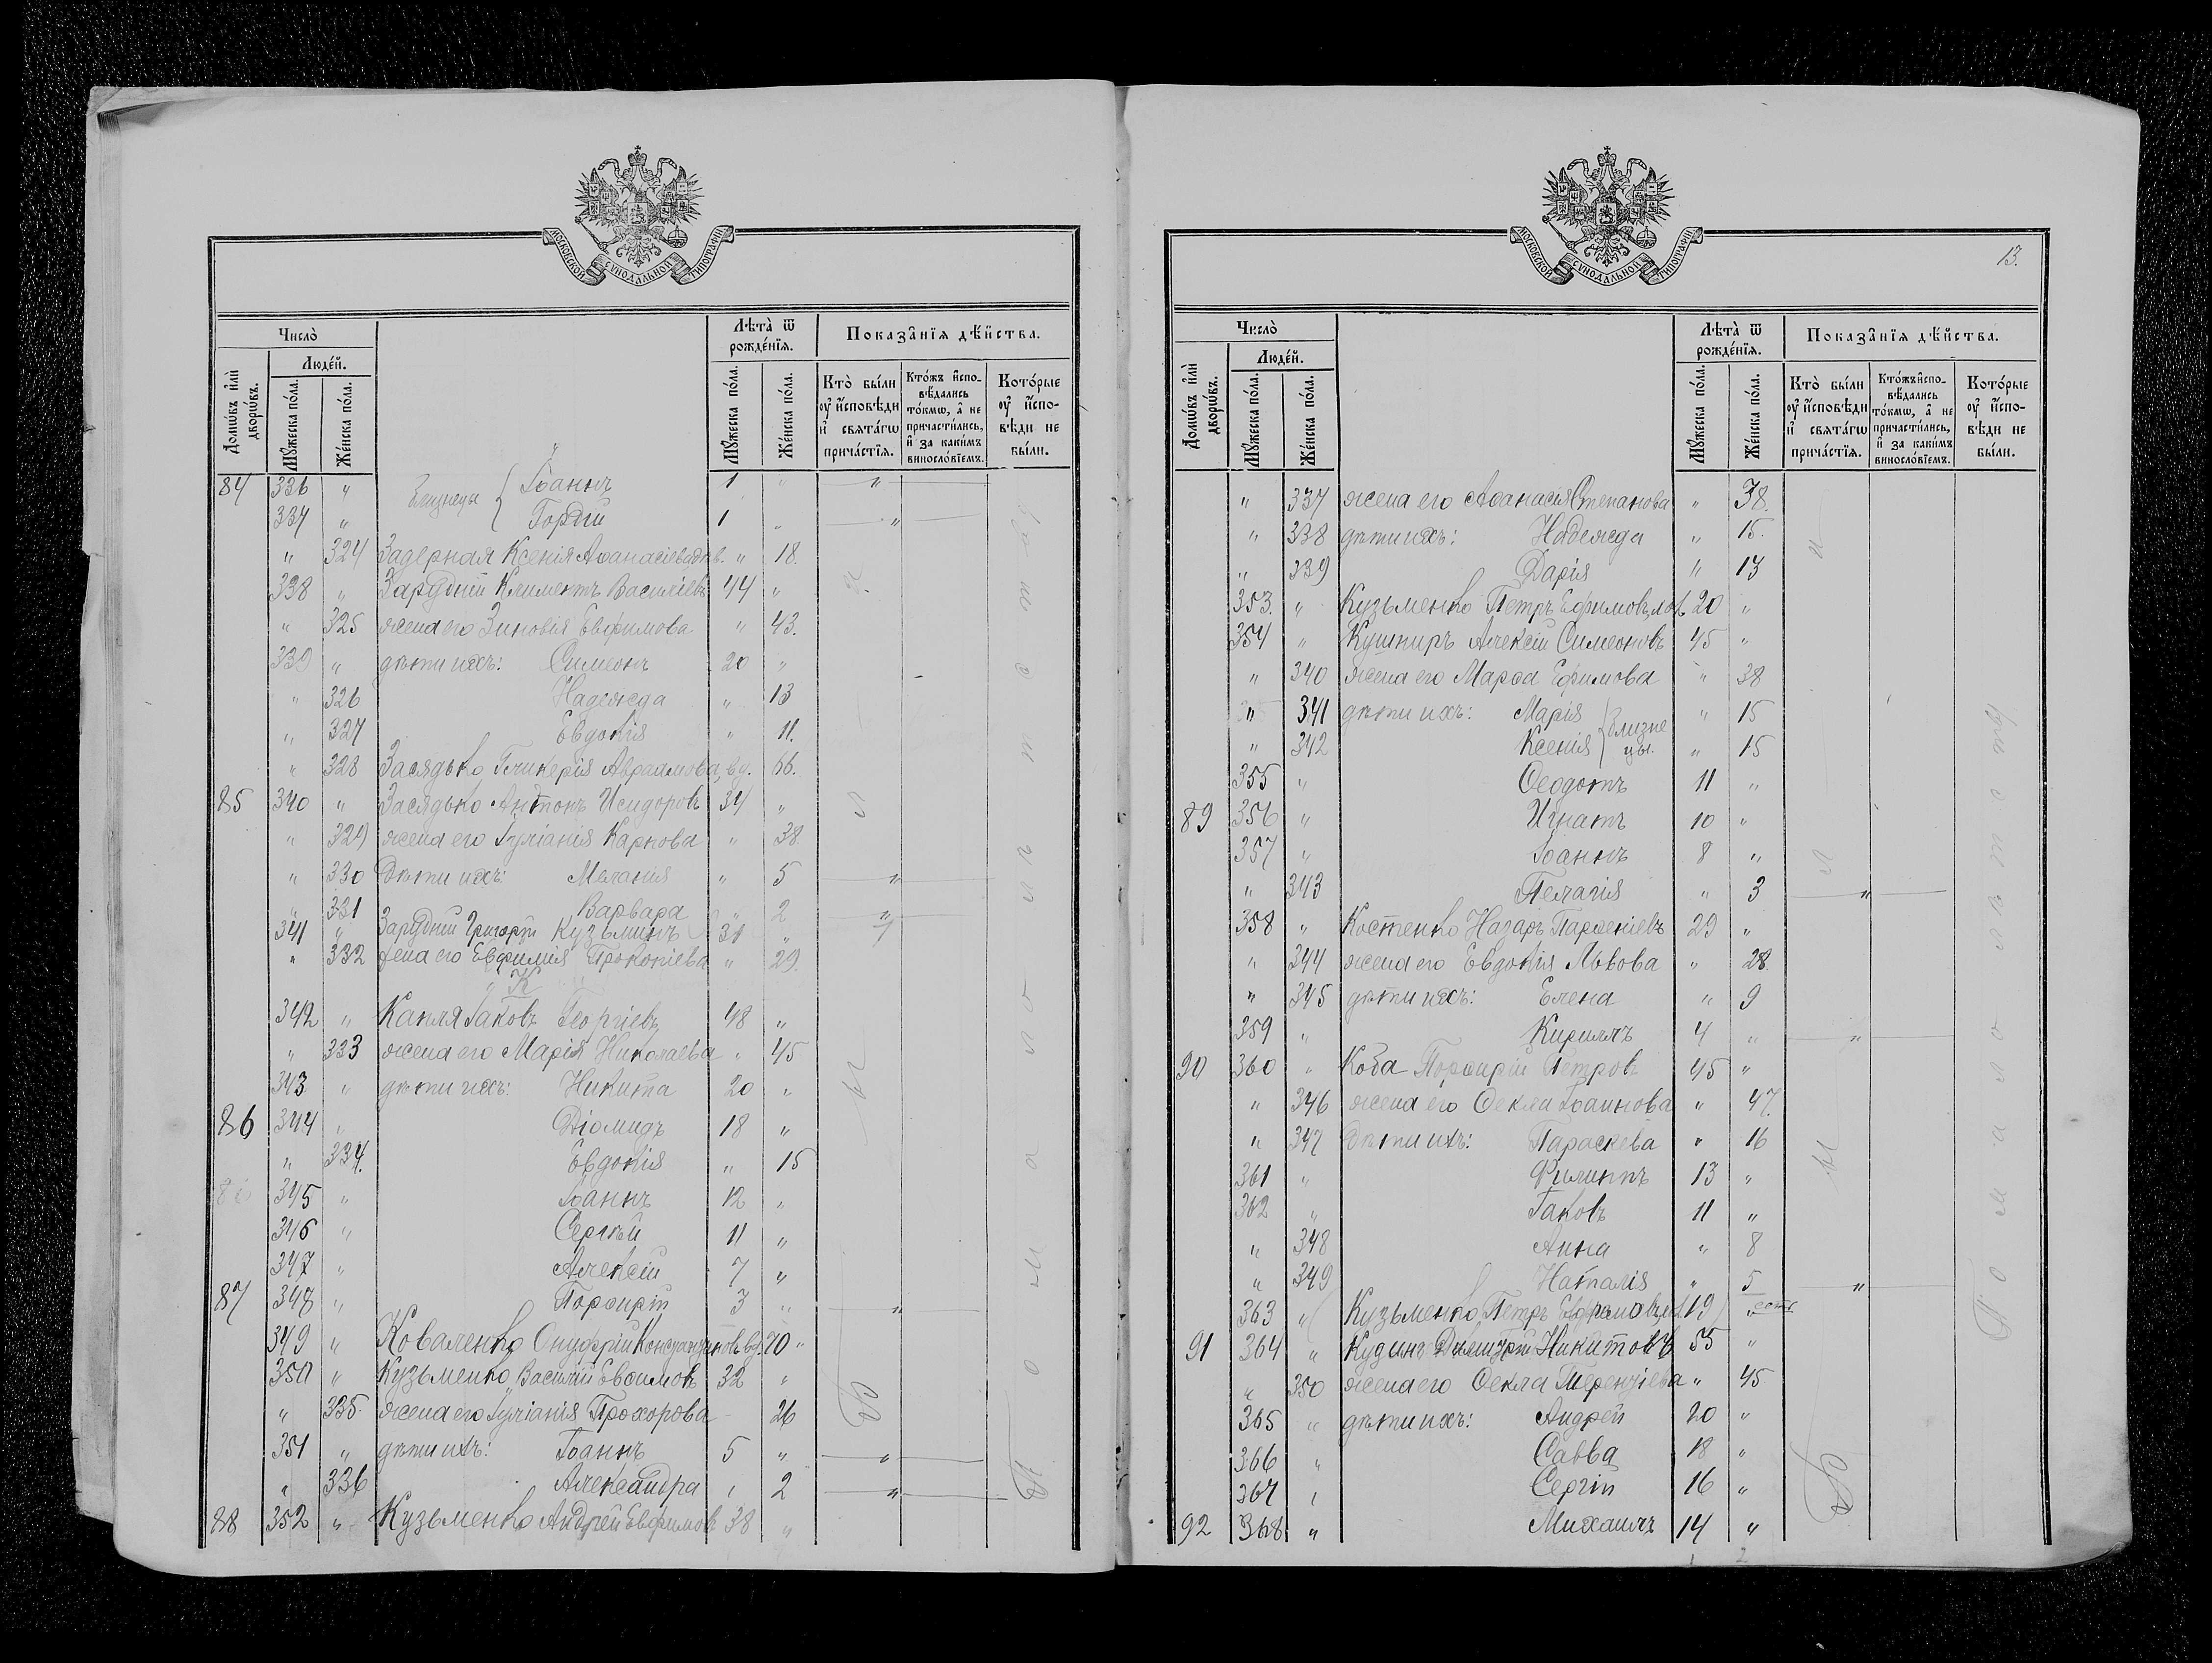 МОСКОВСКОЙ СѴНОДАЛЬНОЙ ТИПОГРАФІИ
Число̀
Людей.
Домѡвъ илѝ дворѡвъ.
Мꙋжеска пола.
Женска пола.
Лѣта̀ ѿ рожденїѧ.
Мꙋжеска пола.
Женска пола.
Показанїѧ дѣйства.
Кто̀ были оу҆ исповѣди и҆ свѧтагѡ причастїѧ.
Ктожъ исповѣдались токмѡ, а҆ не причастились, и҆ за какимъ винословїемъ.
Которые оу҆ исповѣди не были.
84 336 " Близнецы { Іоаннъ 1 " "
337 " Гордій 1 " "
" 324 Задерная Ксенія Аѳанасіева дѣв. " 18.
338 " Зарудній Климентъ Василіевъ 44 "
" 325 жена его Зиновія Евфимова " 43.
339 " дѣти ихъ: Симеонъ 20 "
" 326 Надежда " 13
" 327 Евдокія " 11.
" 328 Засядько Гликерія Авраамова, вд. 66.
85 340 " Засядько Антонъ Исидоровъ 34 "
" 329 жена его Іуліанія Карпова " 38.
" 330 Дѣти ихъ: Меланія " 5 "
" 331 Варвара " 2 "
341 " Зарудній Григорій Кузьминъ 31 "
" 332 жена его Евфимія Прокопіева " 29.
К
342 " Капля Іаковъ Георгіевъ 48 "
" 333 жена его Марія Николаева " 45
343 " дѣти ихъ: Никита 20 "
86 344 " Діомидъ 18 "
" 334. Евдокія " 15
345 " Іоаннъ 12 "
346 " Сергѣй 11 "
347 " Алексій 7 "
87 348 " Порфирій 3 " "
349 " Коваленко Онуфрій Константиновъ вд. 70 "
350 " Кузьменко Василій Евѳимовъ 32 "
" 335. жена его Іуліанія Прохорова 26
351 " дѣти ихъ: Іоаннъ 5 " "
" 336 Александра " 2 "
88 352 " Кузьменко Андрей Евфимовъ 38 "
МОСКОВСКОЙ СѴНОДАЛЬНОЙ ТИПОГРАФІИ
13.
Число̀
Людей.
Домѡвъ илѝ дворѡвъ.
Мꙋжеска пола.
Женска пола.
Лѣта̀ ѿ рожденїѧ.
Мꙋжеска пола.
Женска пола.
Показанїѧ дѣйства.
Кто̀ были оу҆ исповѣди и҆ свѧтагѡ причастїѧ.
Ктожъ исповѣдались токмѡ, а҆ не причастились, и҆ за какимъ винословїемъ.
Которые оу҆ исповѣди не были.
" 337 жена его Аѳанасія Степанова " 38.
" 338 дѣти ихъ: Надежда " 15.
" 339 Дарія " 13
353. " Кузьменко Петръ Ефимовъ, 20 "
354 " Кушниръ Алексій Симеоновъ 45 "
" 340 жена его Марѳа Ефимова " 38
" 341 дѣти ихъ: Марія } близне " 15
" 342 Ксенія } цы. " 15
355 " Ѳеодотъ 11 "
89 356 " Игнатъ 10 "
357 " Іоаннъ 8 "
" 343 Пелагія " 3 "
358 " Костенко Назаръ Парѳеніевъ 29 "
" 344 жена его Евдокія Львова " 28.
" 345 дѣти ихъ: Елена " 9
359 " Кириллъ 4 " "
90 360 " Коба Порфирій Петровъ 45 "
" 346 жена его Ѳекла Іоаннова " 47.
" 347 Дѣти ихъ: Параскева " 16
361 " Филиппъ 13 "
362 " Іаковъ 11 "
" 348 Анна " 8
" 349 Наталія " 5 "
363 " ( Кузьменко Петръ 19 ) " есть
91 364 " Кудинъ Димитрій Никитовъ 55 "
" 350 жена его Ѳекла Терентіева " 45.
365 " дѣти ихъ: Андрей 20 "
366 " Савва 18 "
367 " Сергій 16 "
92 368 " Михаилъ 14 "
1 2